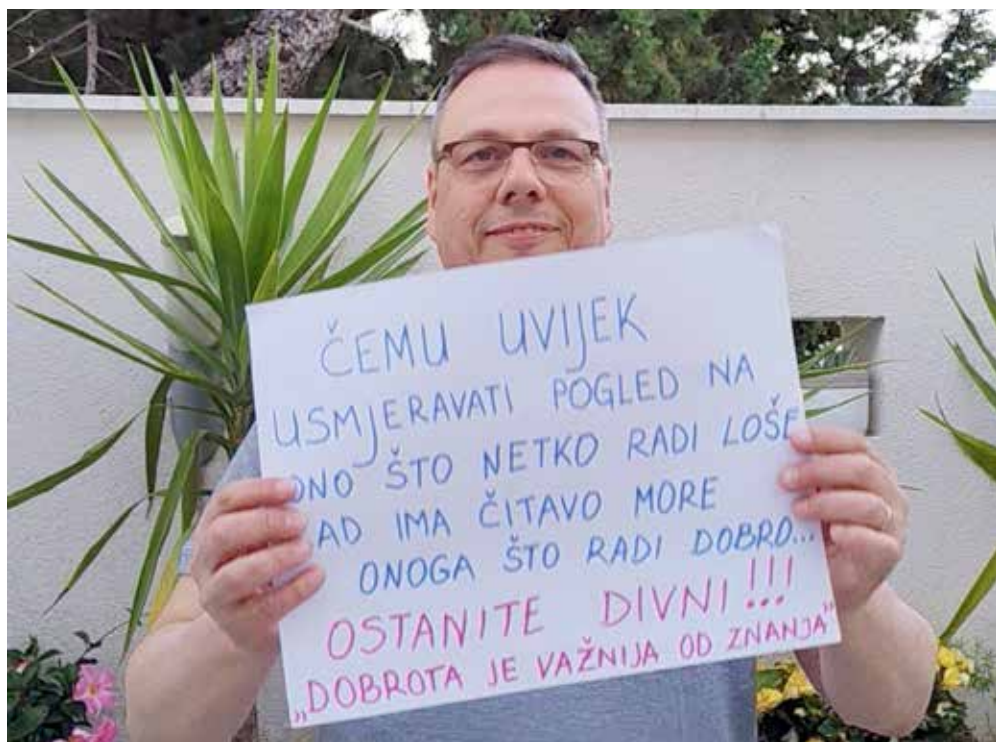 ČEMU UVIJEK
USMJERAVATI POGLED NA
ONO ŠTO NETKO RADI LOŠE
AD IMA ČITAVO MORE
ONOGA ŠTO RADI DOBRO...
OSTANITE DIVNI!!!
„DOBROTA JE VAŽNIJA OD ZNANJA"